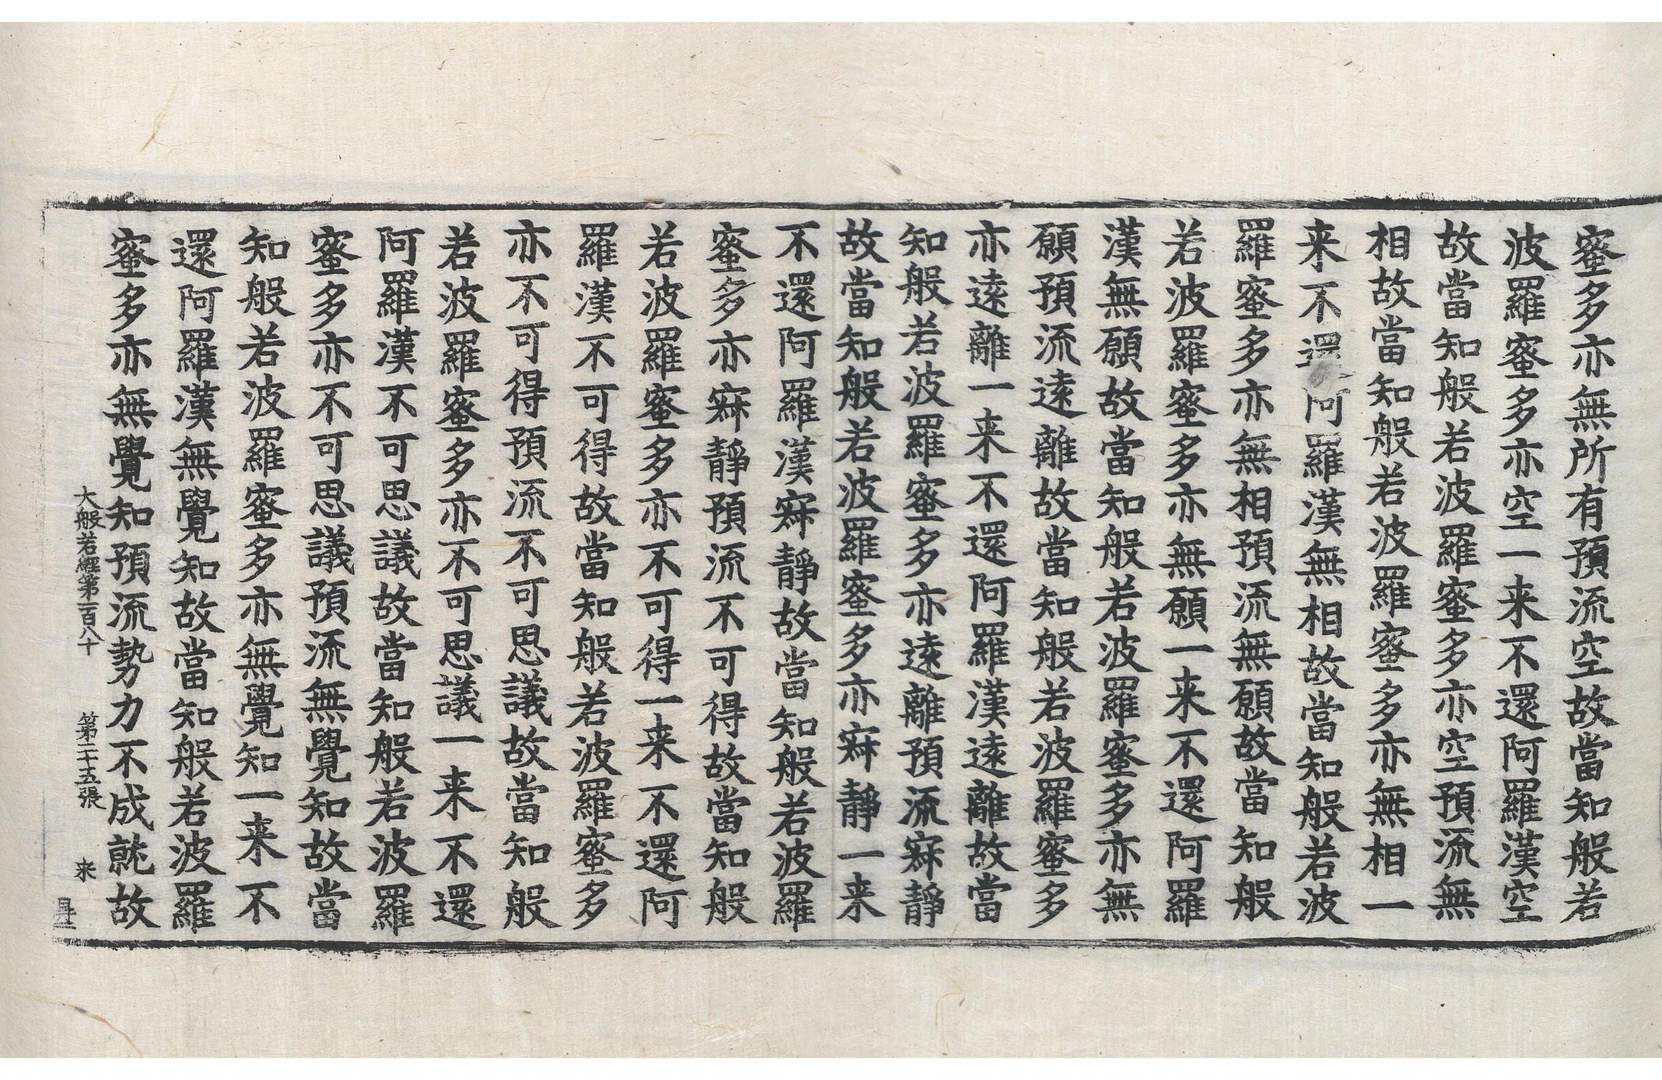 蜜多亦無所有預流空故當知般若
波羅蜜多亦空一来不還阿羅漢空
故當知般若波羅蜜多亦空預流無
相故當知般若波羅蜜多亦無相一
来不還阿羅漢無相故當知般若波
羅蜜多亦無相預流無願故當知般
若波羅蜜多亦無願一来不還阿羅
漢無願故當知般若波羅蜜多亦無
願預流遠離故當知般若波羅蜜多
亦遠離一来不還阿羅漢遠離故當
知般若波羅蜜多亦遠離預流寂靜
故當知般若波羅蜜多亦寂靜一来
不還阿羅漢寂靜故當知般若波羅
蜜多亦寂靜預流不可得故當知般
若波羅蜜多亦不可得一来不還阿
羅漢不可得故當知般若波羅蜜多
亦不可得預流不可思議故當知般
若波羅蜜多亦不可思議一来不還
阿羅漢不可思議故當知般若波羅
蜜多亦不可思議預流無覺知故當
知般若波羅蜜多亦無覺知一来不
還阿羅漢無覺知故當知般若波羅
蜜多亦無覺知預流勢力不成就故
大般若經第一百八十 第二十五張 来